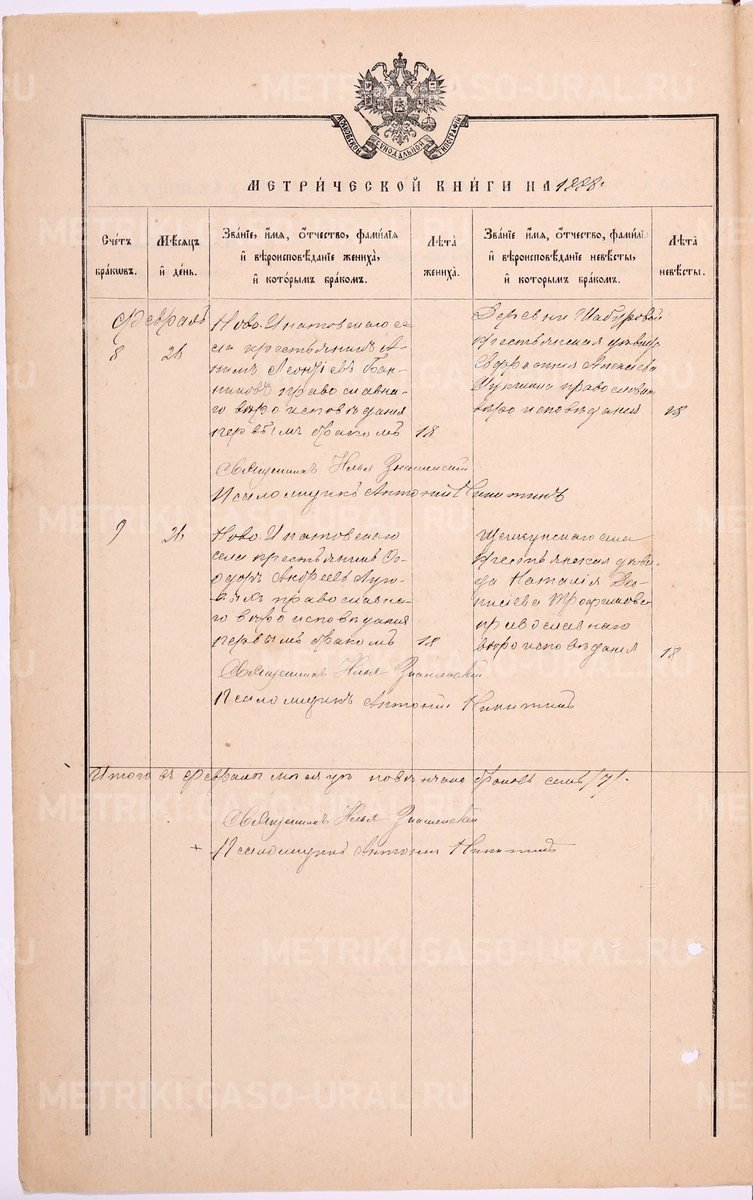 МОСКОВСКОЙ СѴНОДАЛЬНОЙ ТИПОГРАФІИ
МЕТРИ́ЧЕСКОЙ КНИ́ГИ НА 1888.
Сче́тъ бра́ковъ.
Мѣ́сяцъ и҆ де́нь.
Зва́нїе, и҆́мя, ѻ҆́тчество, фами́лїя и҆ вѣроисповѣ́данїе жениха̀, и҆ кото́рымъ бра́комъ.
Лѣ́та жениха̀.
Зва́нїе, и҆́мя, ѻ҆́тчество, фами́лїя и҆ вѣроисповѣ́данїе невѣ́сты, и҆ кото́рымъ бра́комъ.
Лѣ́та невѣ́сты.
Февраль
8
26
Ново-Ипатовскаго се-
ла крестьянинъ
Леонтіевъ Бан-
никовъ православна-
го вѣроисповѣданія
первымъ бракомъ
18
Деревни Шабуровой
крестьянская дѣвица
Евфросинія Алексѣева
православнаго
вѣроисповѣданія
18
Священникъ Илья Знаменскій
Псаломщикъ Антоній Никитинъ
9
26
Ново-Ипатовскаго
села крестьянинъ Ѳе-
одоръ Андреевъ
православна-
го вѣроисповѣданія
первымъ бракомъ
18
Щелкунскаго села
крестьянская дѣви-
ца Наталія Де-
нисіева Трофимова
православнаго
вѣроисповѣданія
18
Священникъ Илья Знаменскій
Псаломщикъ Антоній Никитинъ
Итого въ Февралѣ мѣсяцѣ повѣнчано браковъ семь /7/.
Священникъ Илья Знаменскій
+ Псаломщикъ Антоній Никитинъ
METRIKI.GASO-URAL.RU